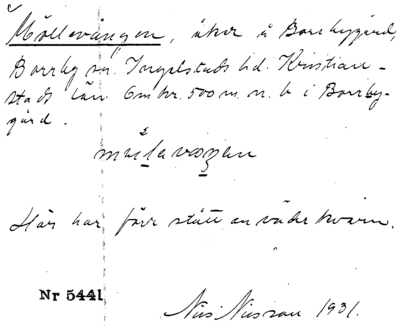 Möllevången, åker å Borrbygård,
Borrby sn. Ingelstads hd. Kristian-
stads län 6 m kr. 500 m. n. b i Borrby-
gård.
Här har förr stått en väderkvarn.
Nr 5441
Nils Nilsson 1931.